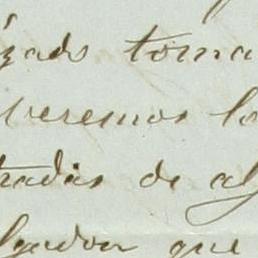 zado toma
veremos lo
tradas de al
lgador que